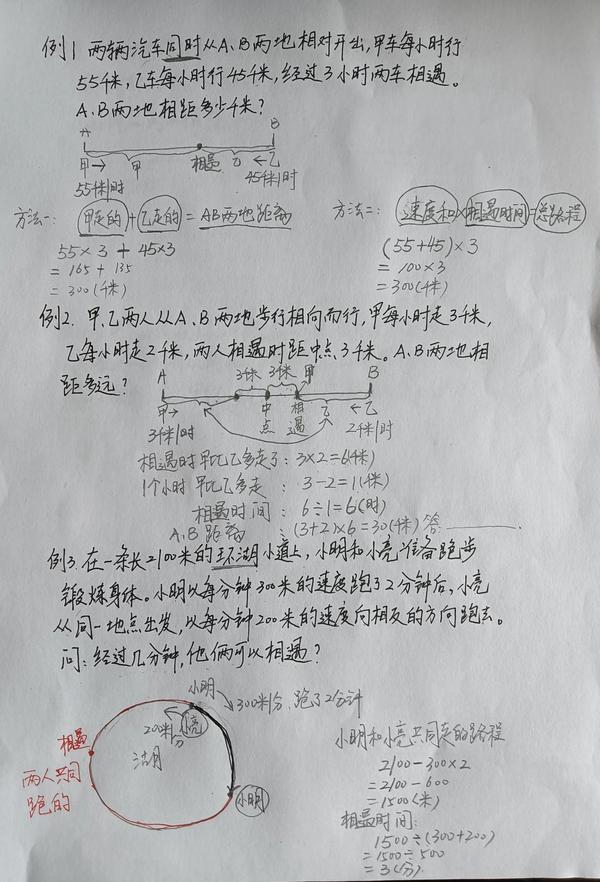 例1 两辆汽车同时从A、B两地相对开出,甲车每小时行
55千米,乙车每小时行45千米,经过3小时两车相遇。
A、B两地相距多少千米?
A B
甲→ 甲 相遇 乙 ←乙
55千米/时 45千米/时
方法一: 甲走的+乙走的=AB两地距离
55×3+45×3
=165+135
=300(千米)
方法二: 速度和×相遇时间=总路程
(55+45)×3
=100×3
=300(千米)
例2. 甲、乙两人从A、B两地步行相向而行,甲每小时走3千米,
乙每小时走2千米,两人相遇时距中点3千米。A、B两地相
距多远?
3千米 3千米 甲
A B
甲→ 中点 相遇 乙 ←乙
3千米/时 2千米/时
相遇时甲比乙多走了:3×2=6(千米)
1个小时甲比乙多走:3-2=1(千米)
相遇时间:6÷1=6(时)
A、B距离:(3+2)×6=30(千米) 答:
例3. 在一条长2100米的环湖小道上,小明和小亮准备跑步
锻炼身体。小明以每分钟300米的速度跑了2分钟后,小亮
从同一地点出发,以每分钟200米的速度向相反的方向跑去。
问:经过几分钟,他俩可以相遇?
小明
300米/分,跑了2分钟
200米/分 小亮
湖
相遇
两人共同
跑的
小明
小明和小亮共同走的路程
2100-300×2
=2100-600
=1500(米)
相遇时间:
1500÷(300+200)
=1500÷500
=3(分)